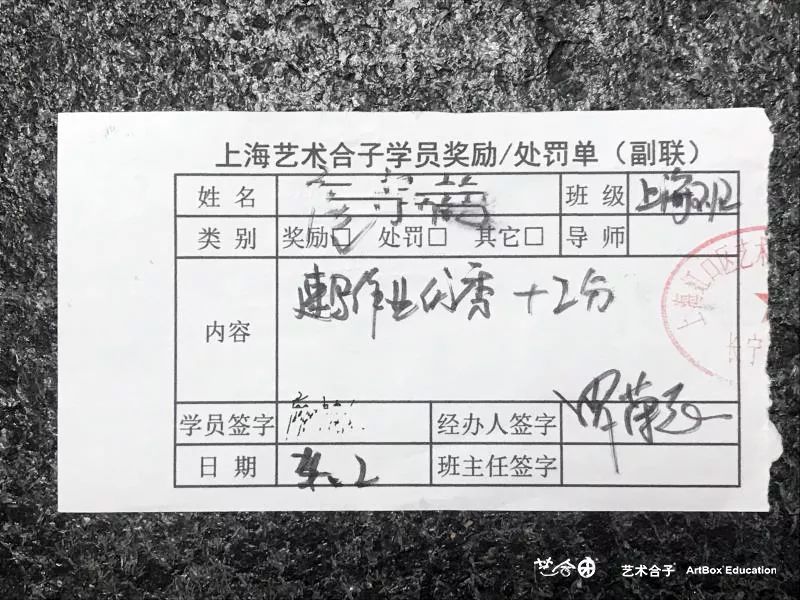 上海艺术合子学员奖励/处罚单（副联）
姓名 班级 上海
类别 奖励□ 处罚□ 其它□ 导师
内容 速写作业优秀 +2分
学员签字 经办人签字
日期 班主任签字
上海虹口区艺术
长宁
艺术合子 ArtBox Education